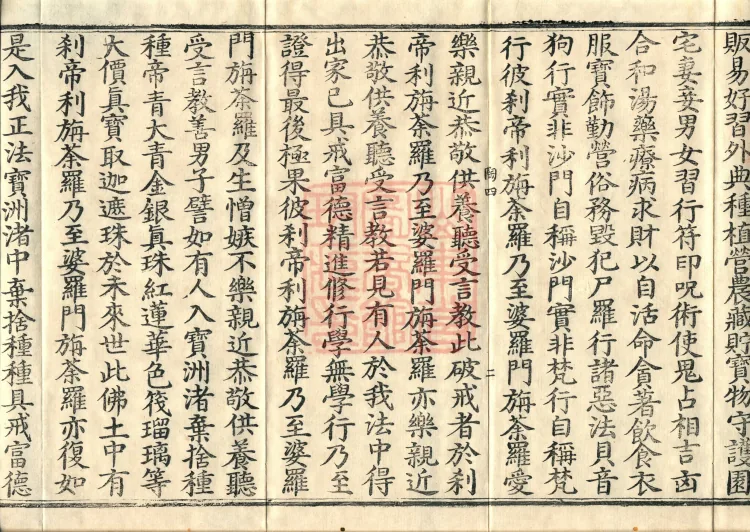 販易好習外典種植營農藏貯寶物守護園
宅妻妾男女習行符印呪術使鬼占相吉凶
合和湯藥療病求財以自活命貪著飲食衣
服寶飾勤營俗務毀犯尸羅行諸惡法貝音
狗行實非沙門自稱沙門實非梵行自稱梵
行彼刹帝利旃荼羅乃至婆羅門旃荼羅愛
二
樂親近恭敬供養聽受言教此破戒者於刹
帝利旃荼羅乃至婆羅門旃荼羅亦樂親近
恭敬供養聽受言教若見有人於我法中得
出家已具戒富德精進修行學無學行乃至
證得最後極果彼刹帝利旃荼羅乃至婆羅
門旃荼羅反生憎嫉不樂親近恭敬供養聽
受言教善男子譬如有人入寶洲渚棄捨種
種帝青大青金銀真珠紅蓮華色筏瑠璃等
大價真寶取迦遮珠於未來世此佛土中有
刹帝利旃荼羅乃至婆羅門旃荼羅亦復如
是入我正法寶洲渚中棄捨種種具戒富德